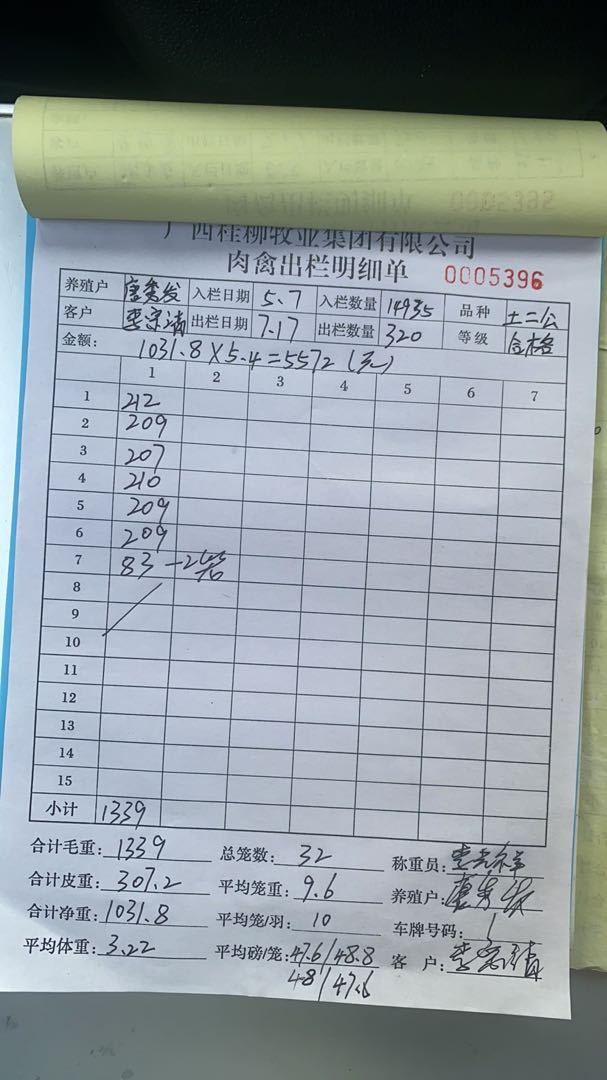 0005392
广西桂柳牧业集团有限公司
肉禽出栏明细单 0005396
养殖户 唐秀发 入栏日期 5.7 入栏数量 14935 品种 土二公
客户 出栏日期 7.17 出栏数量 320 等级 合格
金额: 1031.8×5.4=5572(元)
1 2 3 4 5 6 7
1 212
2 209
3 207
4 210
5 209
6 209
7 83 -2
8
9
10
11
12
13
14
15
小计 1339
合计毛重: 1339 总笼数: 32 称重员:
合计皮重: 307.2 平均笼重: 9.6 养殖户: 唐秀发
合计净重: 1031.8 平均笼/羽: 10 车牌号码: 1
平均体重: 3.22 平均磅/笼: 47.6/48.8 客 户:
48/47.6